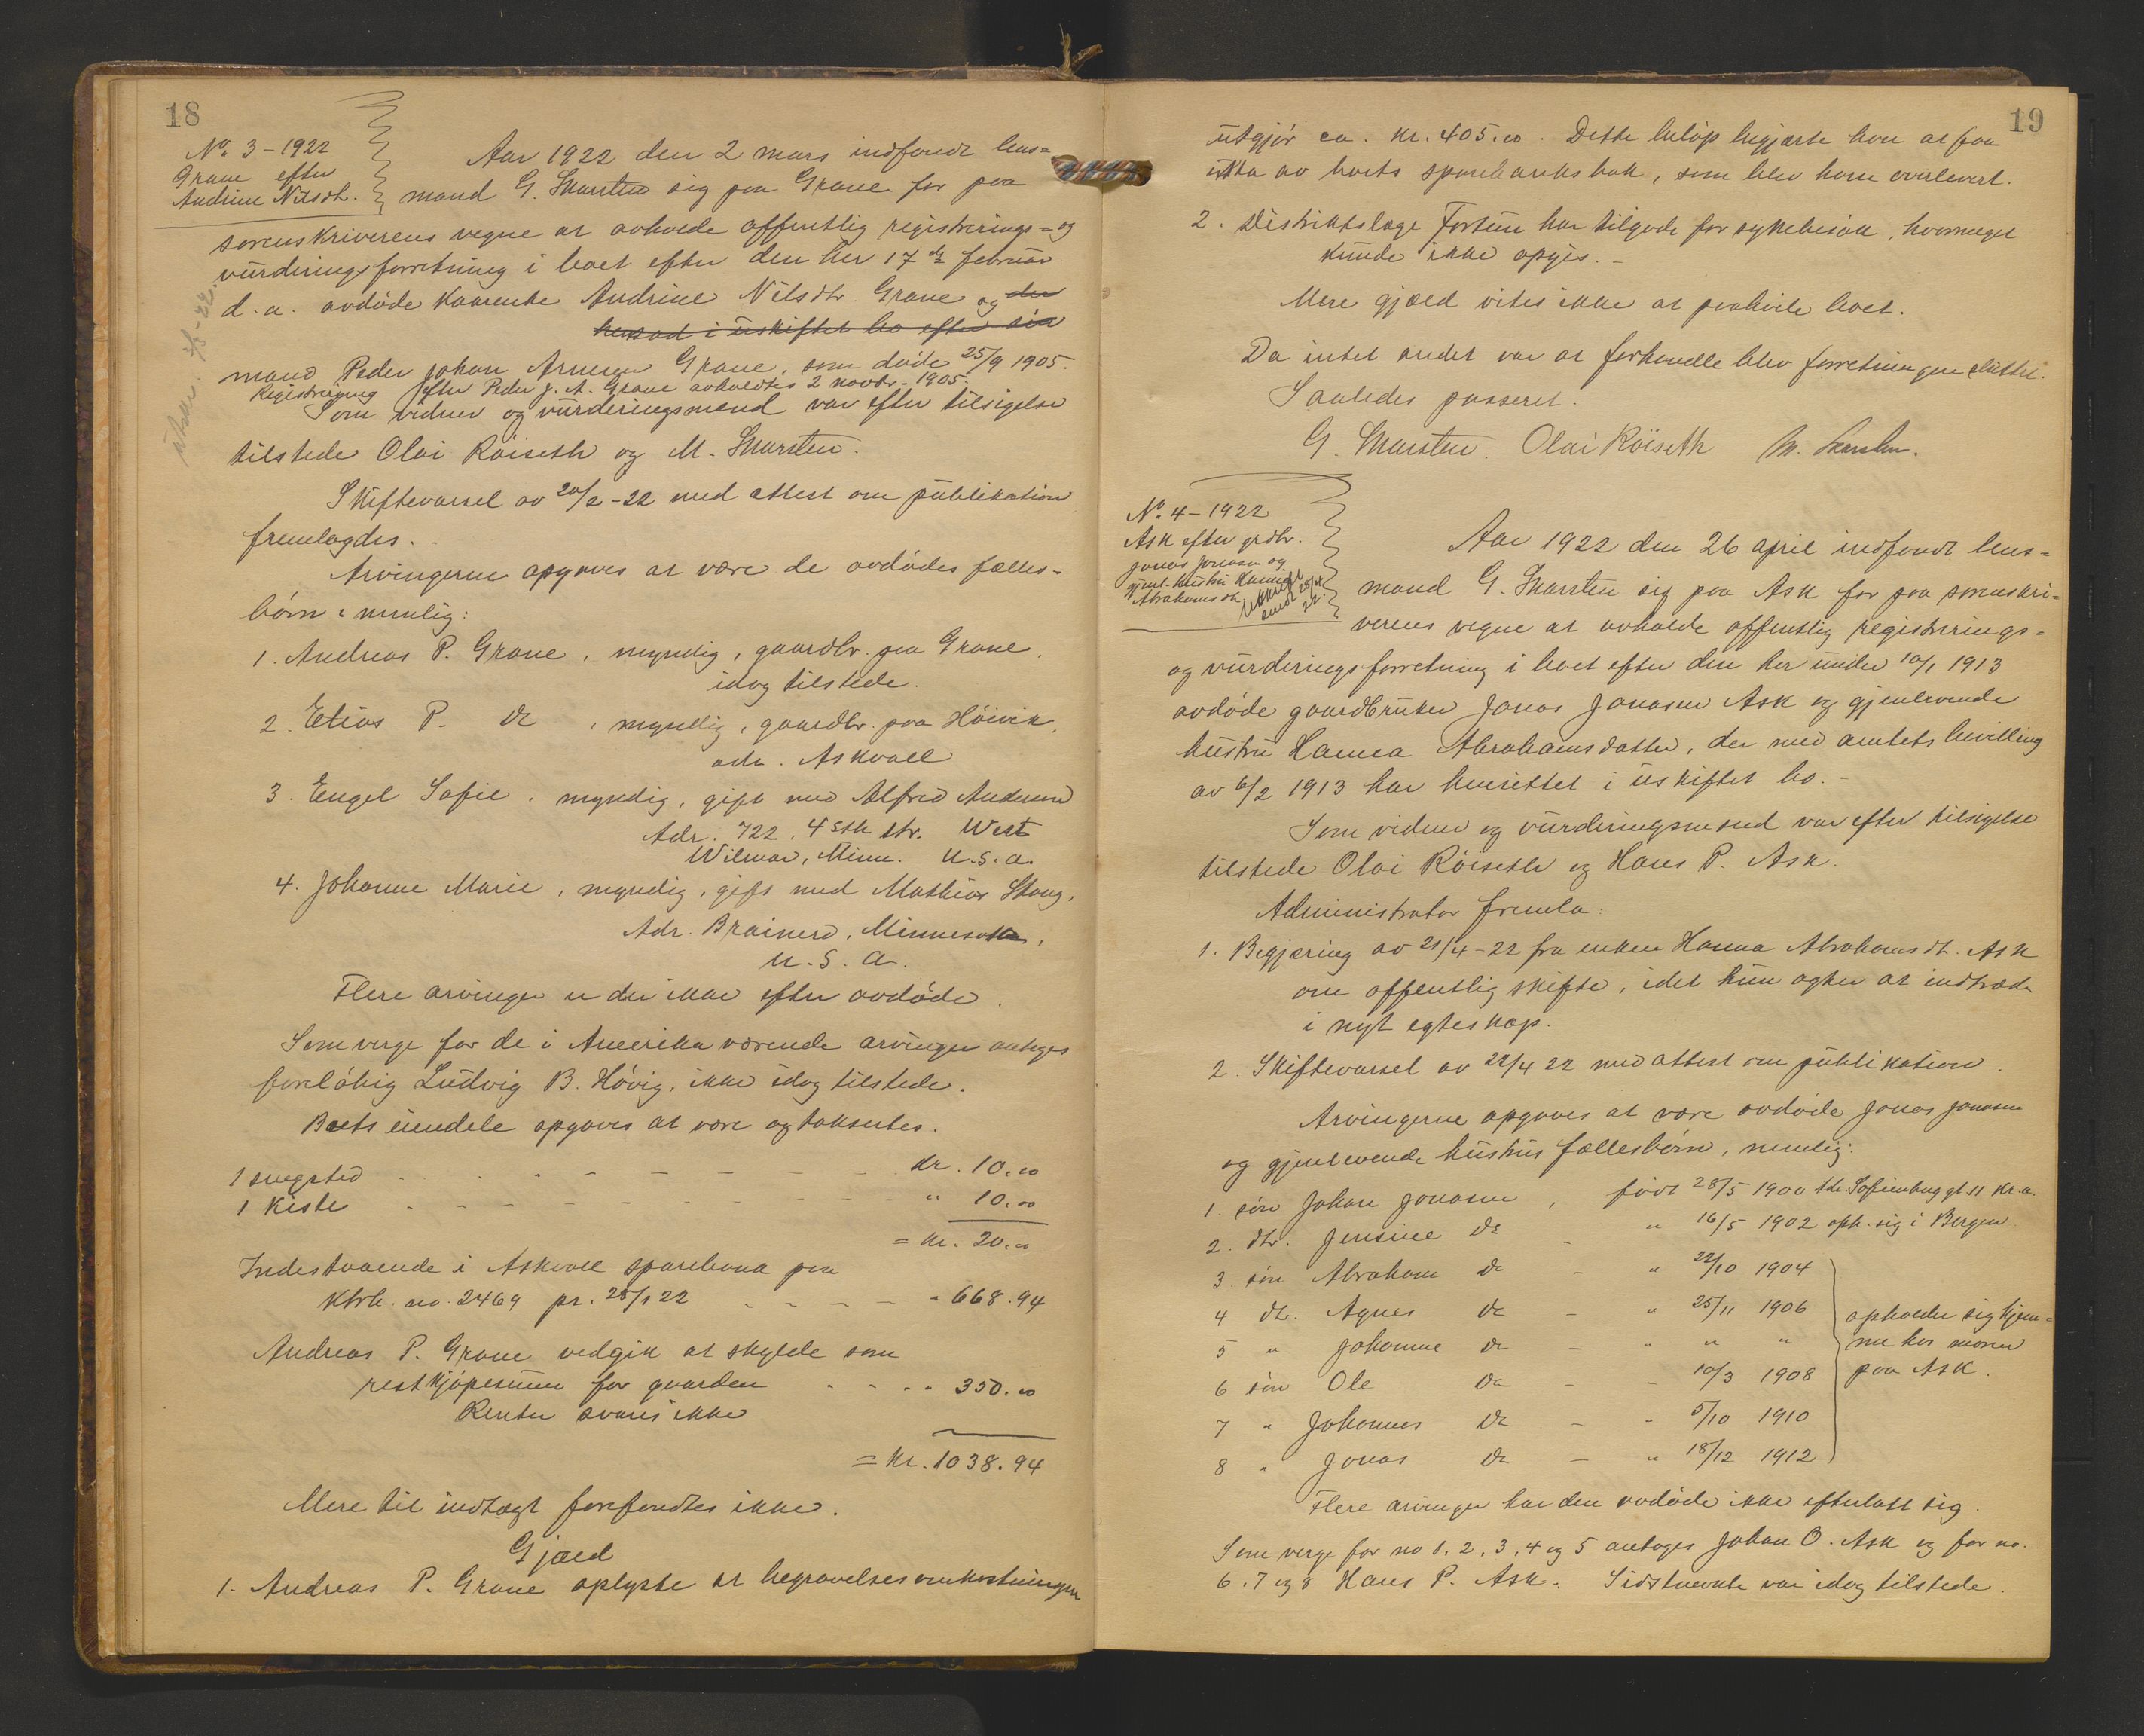 18
No. 3 - 1922
Grane efter
Andrine Nilsdtr.
Aar 1922 den 2 mars indfandt lens=
mand G. Skarsten sig paa Grane for paa
sorenskriverens vegne at avholde offentlig registrerings= og
vurderingsforretning i boet efter den her 17de februar
d.a. avdøde kaarenke Andrine Nilsdtr. Grane og den
hensad i uskiftet bo efter sin
mand Peder Johan Arnesen Grane, som døde 25/9 1905.
Registrering efter Peder J. A. Grane avholdtes 2 novbr. 1905.
Som vidner og vurderingsmænd var efter tilsigelse
tilstede Olai Røiseth og M. Skarsten.
Skiftevarsel av 20/2 - 22 med attest om publikation
fremlagdes. -
Arvingerne opgaves at være de avdødes fælles-
børn: nemlig:
1. Andreas P. Grane, myndig, gaardbr. paa Grane,
idag tilstede.
2. Elias P. do, myndig, gaardbr. paa Høivik,
adr. Askvoll
3. Engel Sofie, myndig, gift med Alfred Andersen
Adr. 722. 4 5th str. West
Wilmar, Minn. U.S.A.
4. Johanne Marie, myndig, gift med Mathias Stang,
Adr. Brainerd, Minnesota,
U.S.A.
Flere arvinger er der ikke efter avdøde.
Som verge for de i Amerika værende arvinger antoges
foreløbig Ludvig B. Høvig, ikke idag tilstede.
Boets eiendele opgaves at være og taksertes.
1 sengsted - - - - - - kr. 10.00
1 Kiste - - - - - - - " 10.00
= kr. 20.00
Indestaaende i Askvoll sparebank paa
Ktrb. no. 2469 pr. 28/1 22 - - - - " 668.94
Andreas P. Grane vedgik at skylde som
restkjøpesum for gaarden - - - " 350.00
Renter svares ikke
= Kr. 1038.94
Mere til indtægt forefandtes ikke.
Gjæld
1. Andreas P. Grane oplyste at begravelsesomkostningen
19
utgjør ca. kr. 405.00. Dette beløp begjærte han at faa
utta av boets sparebanksbok, som blev ham overlevert.
2. Distriktslæge Fortun har tilgode for sykebesøk, hvormeget
kunde ikke opgis. -
Mere gjæld vites ikke at paahvile boet.
Da intet andet var at forhandle blev forretningen sluttet.
Saaledes passeret.
G. Skarsten. Olai Røiseth M. Skarsten.
No. 4 - 1922
Ask efter grdbr.
Jonas Jonasen og
gjenl. hustru Hanna
Abrahamsdtr.
Utskrift
sendt 28/4
22.
Aar 1922 den 26 april indfandt lens=
mand G. Skarsten sig paa Ask for paa sorenskri=
verens vegne at avholde offentlig registrerings-
og vurderingsforretning i boet efter den her under 10/1 1913
avdøde gaardbruker Jonas Jonasen Ask og gjenlevende
hustru Hanna Abrahamsdatter, der med amtets bevilling
av 6/2 1913 har hensittet i uskiftet bo. -
Som vidner og vurderingsmænd var efter tilsigelse
tilstede Olai Røiseth og Hans P. Ask.
Administrator fremla:
1. Begjæring av 21/4 - 22 fra enken Hanna Abrahamsdt. Ask
om offentlig skifte, idet hun agter at indtræde
i nyt egteskap.
2. Skiftevarsel av 22/4 22 med attest om publikation.
Arvingerne opgaves at være avdøde Jonas Jonasen
og gjenlevende hustrus fællesbørn, nemlig:
1. søn Johan Jonasen, født 28/5 1900 Sofienbuggt 11 Kr.a.
2. dtr. Jensine do - " 16/5 1902 oph. sig i Bergen
3. søn Abraham do - " 22/10 1904
4 dtr. Agnes do - " 25/11 1906
5 " Johanne do - " " "
6 søn Ole do - - 10/3 1908
7 " Johannes do - " 5/10 1910
8 " Jonas do - " 18/12 1912
opholder sig hjem=
me hos moren
paa Ask.
Flere arvinger har den avdøde ikke efterlatt sig.
Som verge for no 1, 2, 3, 4 og 5 antoges Johan O. Ask og for no.
6, 7 og 8 Hans P. Ask. Sidstnævnte var idag tilstede.